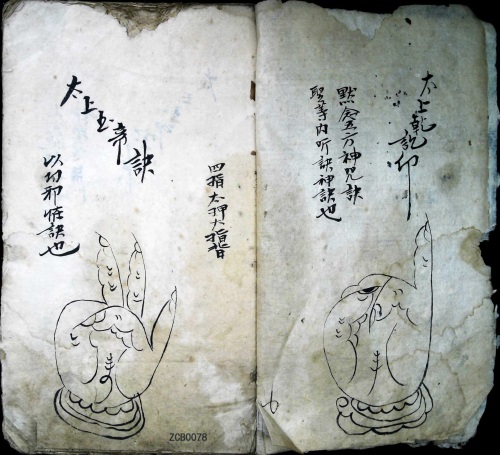 太上乾訣仰
點念五方神咒訣
聖等内听訣神訣也
四指太押大指背
太上玉帝訣
以切邪怪訣也
ZCB0078